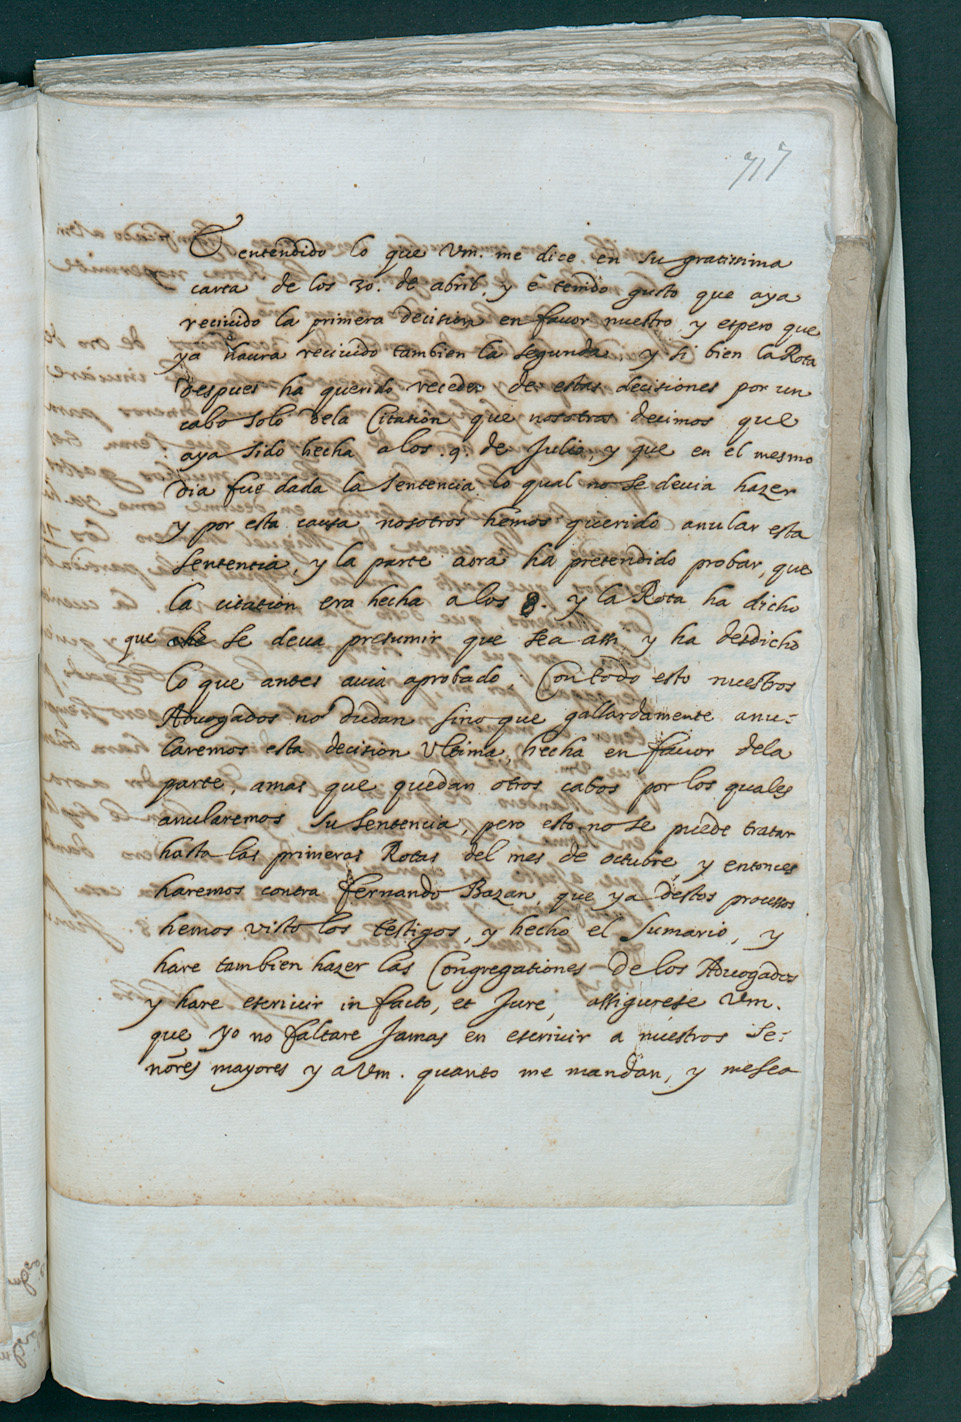 717
E entendido lo que Vm. me dice en su gratissima
carta de los 30. de abril, y é tenido gusto que aya
reciuido la primera decision en fauor nuestro, y espero que
ya haura reciuido tambien la segunda, y si bien la Rota
despues ha querido receder de estas decisiones por un
cabo solo dela Citation que nosotros decimos que
aya sido hecha a los .9. de Julio, y que en el mesmo
dia fue dada la sentencia lo qual no se deuia hazer
y por esta causa nosotros hemos querido anular esta
sentencia, y la parte aora ha pretendido probar, que
la citation era hecha a los 8. y la Rota ha dicho
que se deua presumir que sea assi y ha desdicho
lo que antes auia aprobado; Con todo esto nuestros
Aduogados no dudan sino que gallardamente anu-
laremos esta decision Vltima, hecha en fauor dela
parte, amas que quedan otros cabos por los quales
anularemos su sentencia, pero esto no se puede tratar
hasta las primeras Rotas del mes de octubre, y entonces
haremos contra Fernando Bazan, que ya destos processos
hemos visto los testigos, y hecho el Sumario, y
hare tambien hazer las Congregationes de los Aduogados
y hare escriuir in facto, et Jure, assigurese Vm.
que yo no faltare Jamas en escriuir a nuestros Se-
ñores mayores y a Vm. quanto me mandan, y me sea